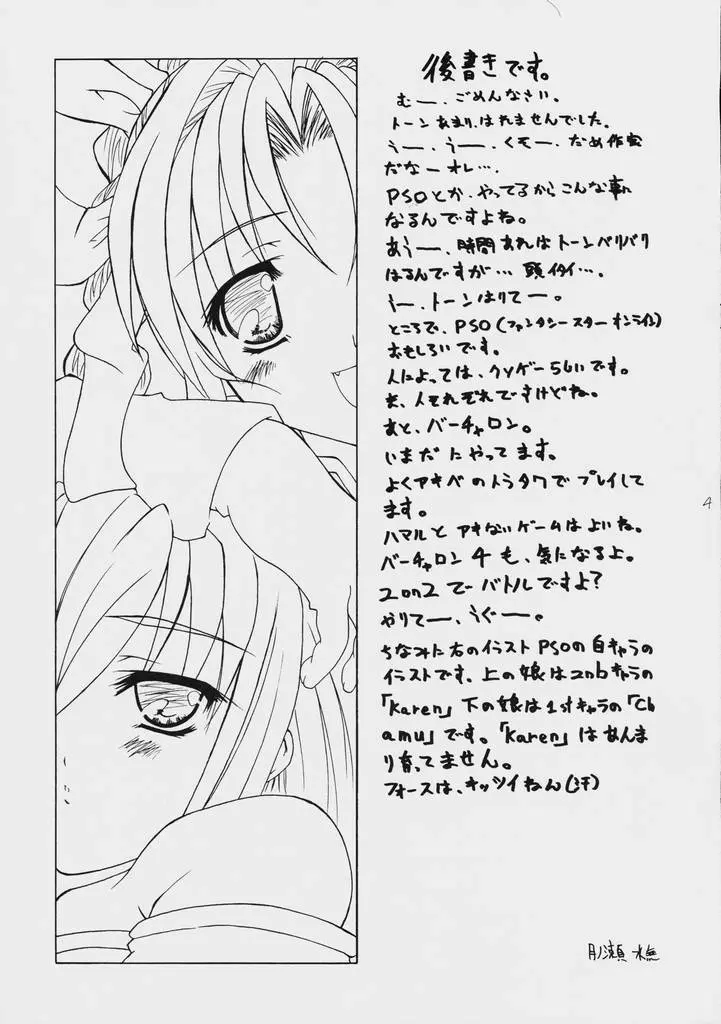 後書きです。
むー、ごめんなさい。
トーンあまり、はれませんでした。
うー、うー、くそー、だめ作家
だなーオレ…。
PSOとか、やってるからこんな事に
なるんですよね。
あうー、時間あればトーンバリバリ
はるんですが…頭イタイ…。
うー、トーンはりてー。
ところで、PSO(ファンタシースターオンライン)
おもしろいです。
人によっては、クソゲーらしいです。
ま、人それぞれですけどね。
あと、バーチャロン。
いまだにやってます。
よくアキバのトラタワでプレイして
ます。
ハマルとアキないゲームはよいね。
バーチャロン4も、気になるよ。
2on2でーバトルですよ?
やりてー、うぐー。
ちなみに右のイラストPSOの自キャラの
イラストです、上の娘は2ndキャラの
「Karen」下の娘は1stキャラの「Ch
amu」です。「Karen」はあんま
り育ってません。
フォースは、キッツイねん(汗)
4